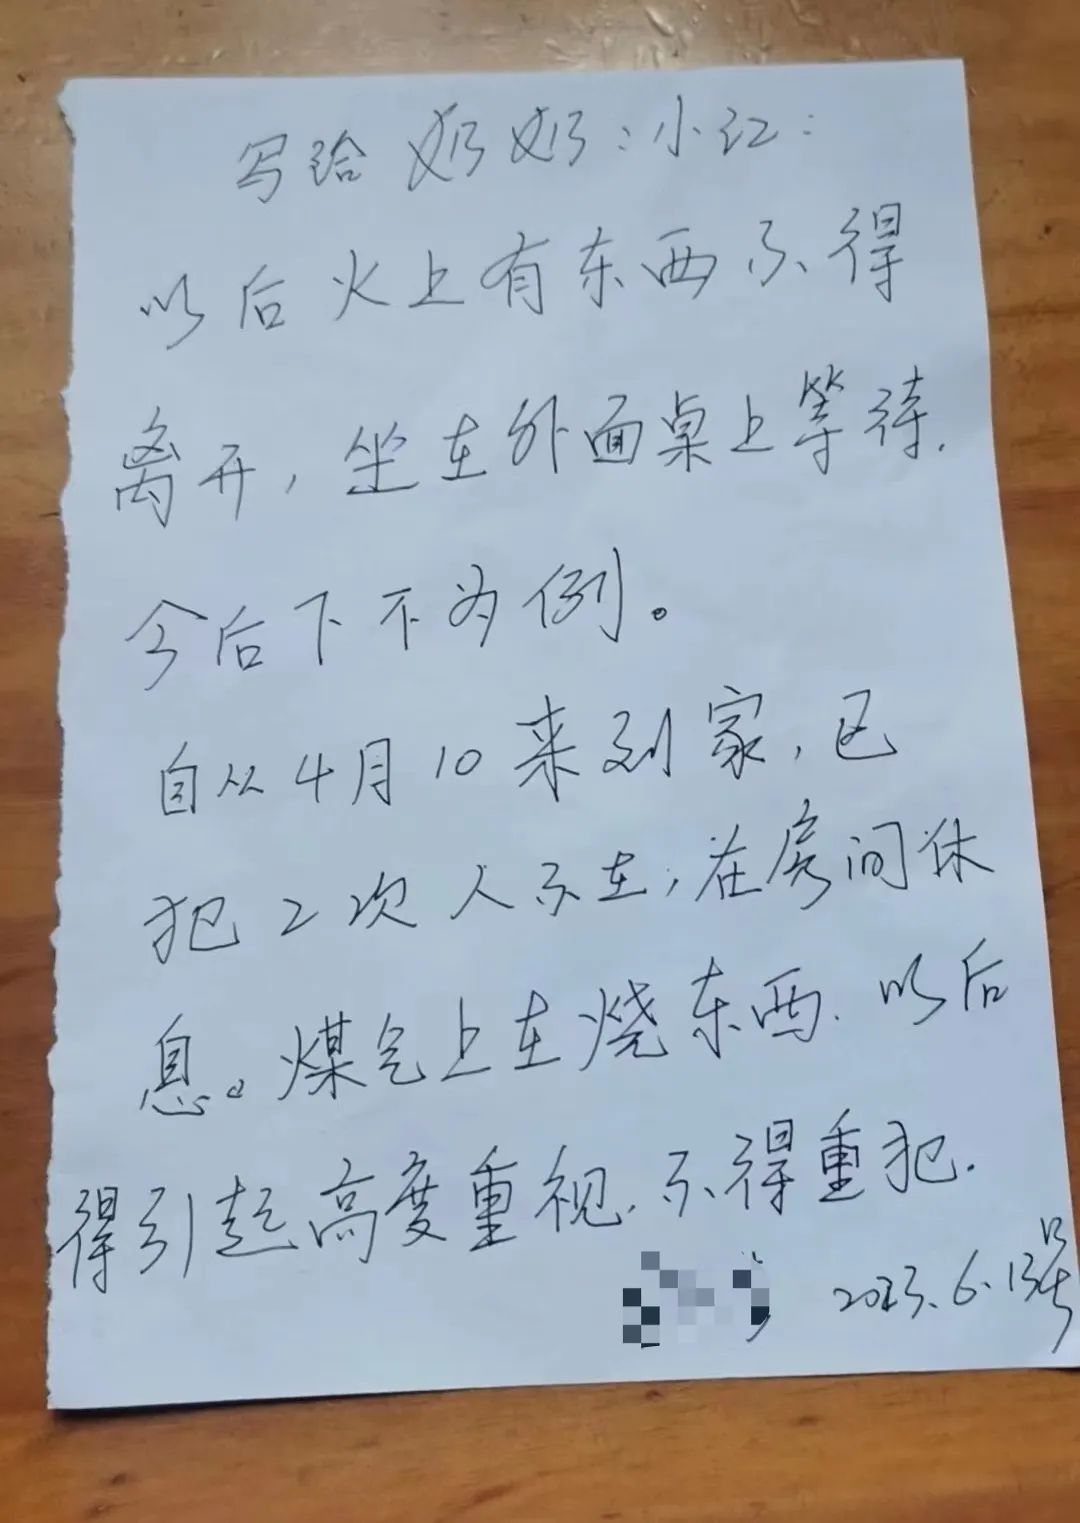 写给奶奶:小红:
以后火上有东西不得
离开,坐在外面桌上等待.
今后下不为例。
自从4月10来到家,已
犯2次人不在,在房间休
息。煤气上在烧东西.以后
得引起高度重视.不得重犯.
2023.6.13号